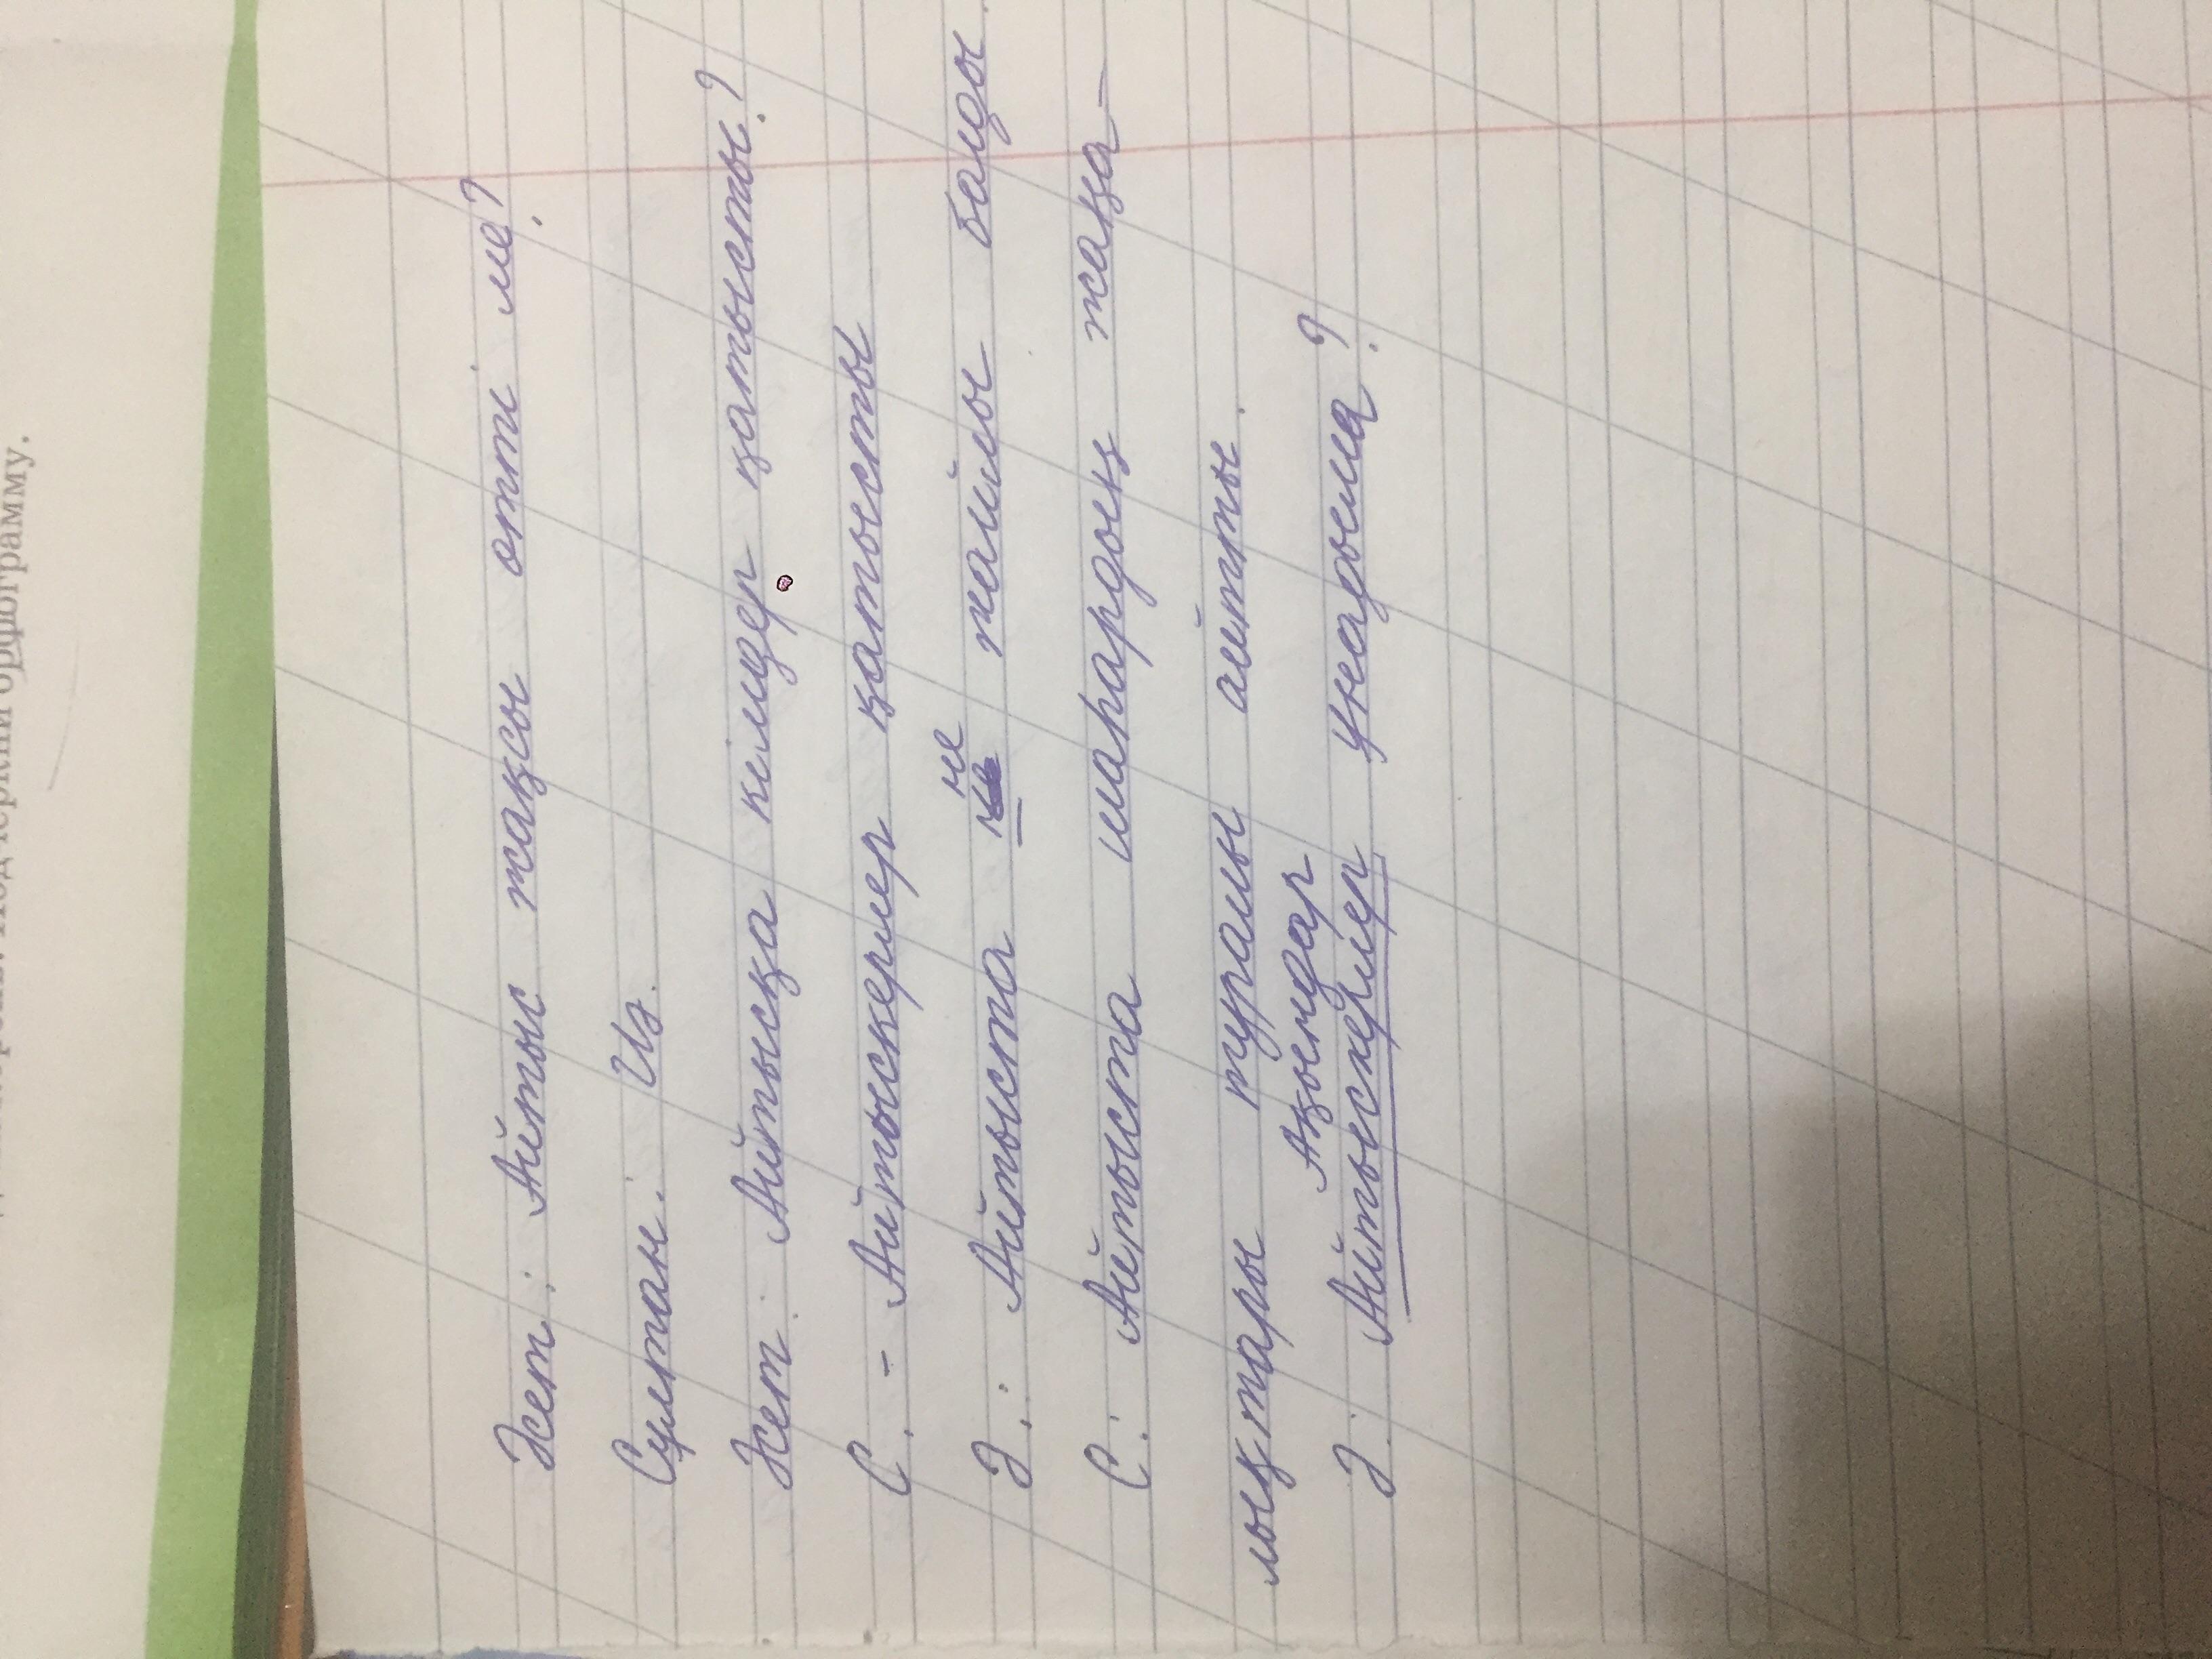 орфограмму.
Әсет: Айтыс жақсы өтті ме?
Сұлтан: Иә.
Әсет: Айтысқа кімдер қатысты?
С. - Айтыскерлер қатысты
Ә.: Айтыста не жайлы болды.
С.: Айтыста шаһардың жаңа-
лықтары туралы айтты.
Ақындар
Ә: Айтыскерлер ұнадыма?